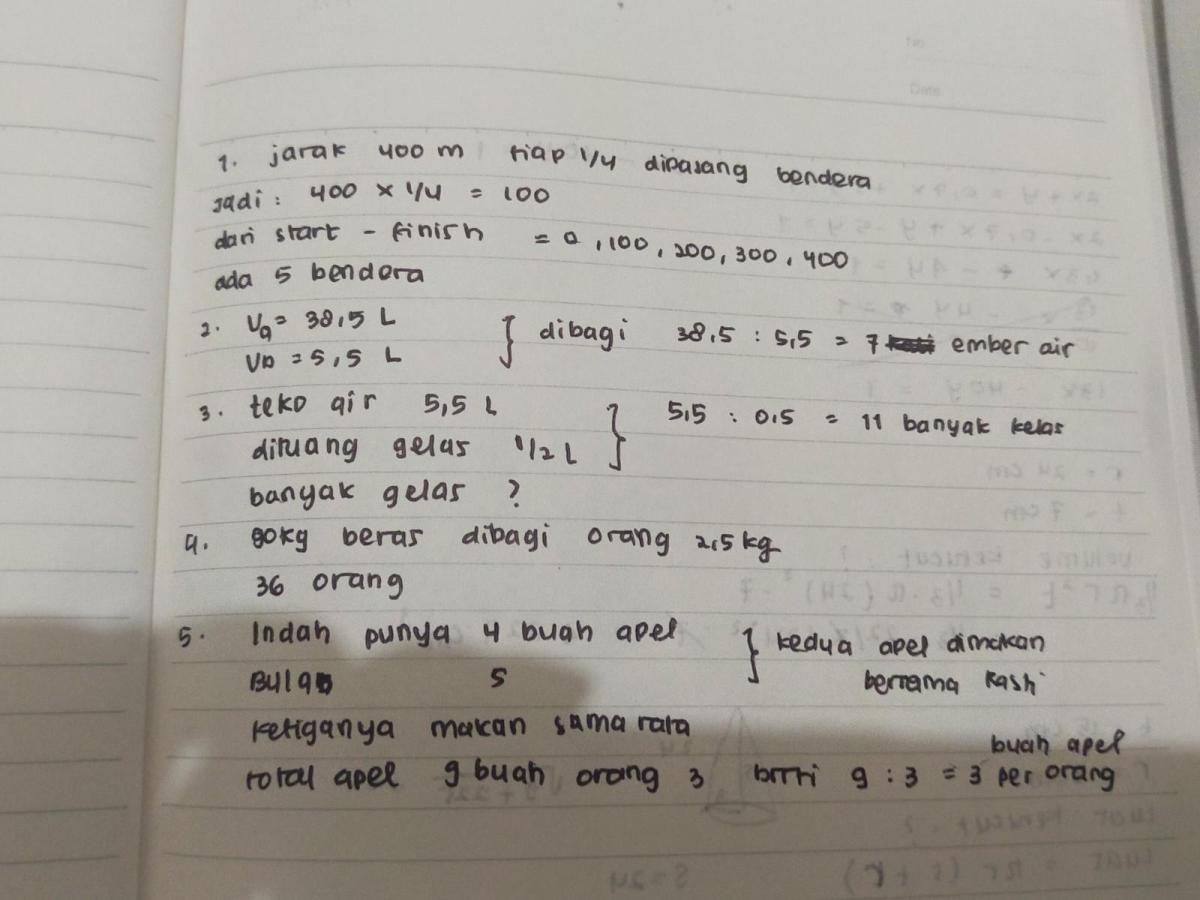 No
Date
1. jarak 400 m tiap 1/4 dipasang bendera
Jadi : 400 x 1/4 = 100
dari start - finish = 0, 100, 200, 300, 400
ada 5 bendera
2. Va = 38,5 L } dibagi 38,5 : 5,5 = 7 ember air
Vb = 5,5 L
3. teko air 5,5 L } 5,5 : 0.5 = 11 banyak kelas
dituang gelas 1/2 L
banyak gelas ?
4. 90kg beras dibagi orang 2,5 kg
36 orang
5. Indah punya 4 buah apel } kedua apel dimakan
Bulan 5 bersama Kashi
ketiganya makan sama rata
buah apel
total apel 9 buah orang 3 brrti 9 : 3 = 3 per orang